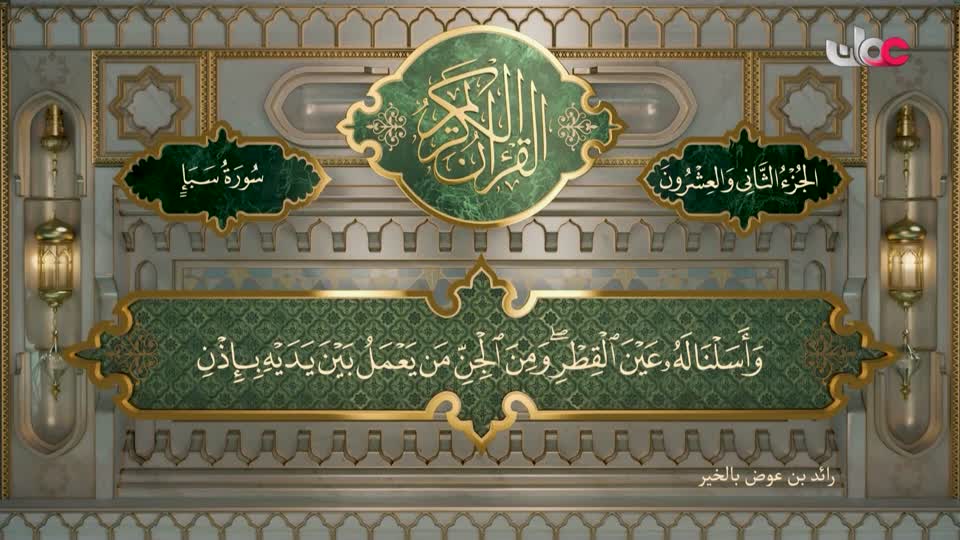 عمان
القرآن الكريم
الجزء الثاني والعشرون
سورة سبإ
وَأَسَلْنَا لَهُۥ عَيْنَ ٱلْقِطْرِۖ وَمِنَ ٱلْجِنِّ مَن يَعْمَلُ بَيْنَ يَدَيْهِ بِإِذْنِ
رائد بن عوض بالخير